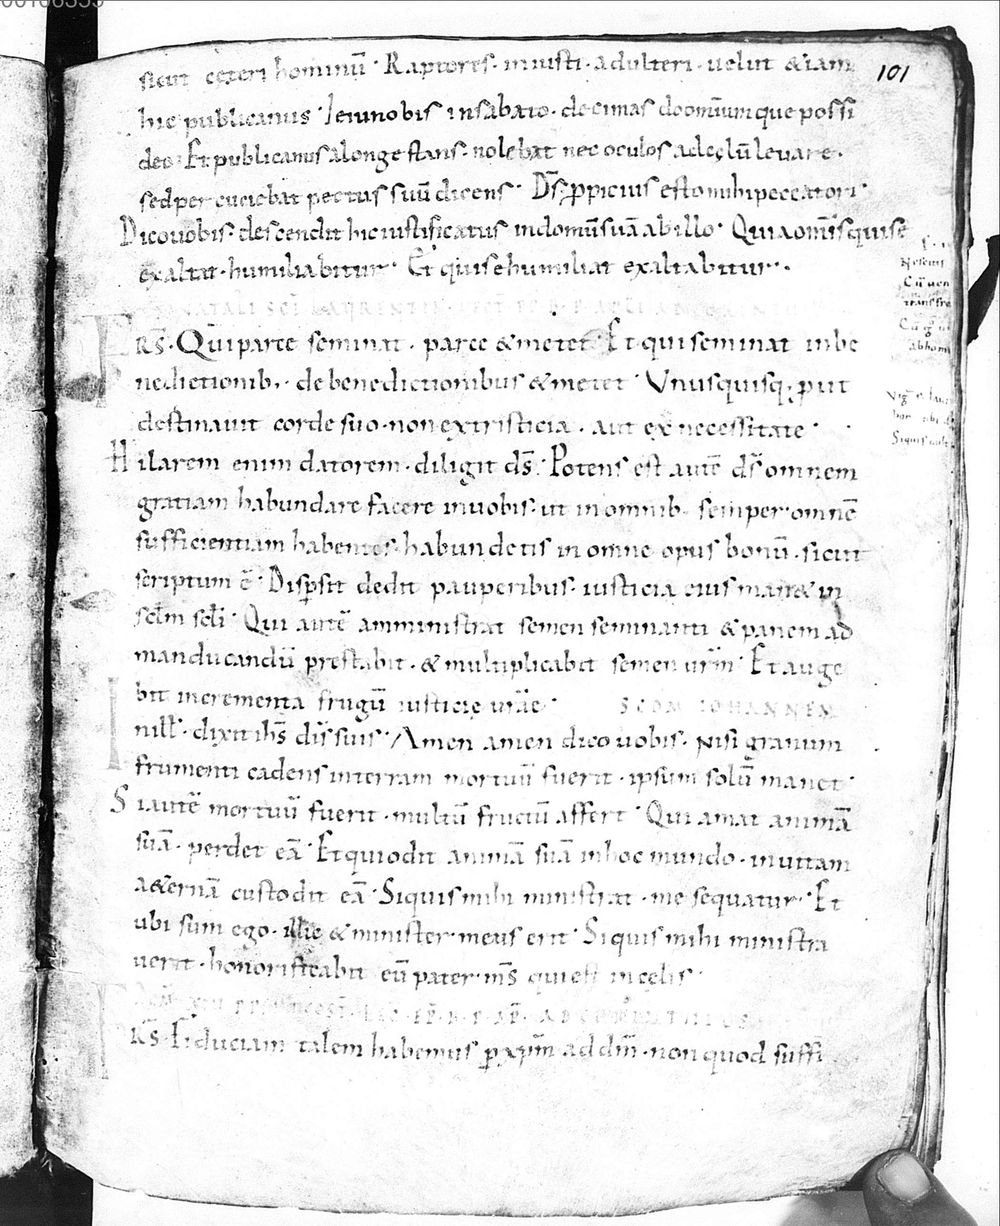 00106399
101
sicut ceteri hominū· Raptores· iniusti· adulteri· uelut &iam
hic publicanus· Ieiuno bis in sabato· decimas do omnium que possi
deo· Et publicanus a longe stans· nolebat nec oculos ad cęlū leuare·
sed percuciebat pectus suū dicens· D̄s ꝓpicius esto mihi peccatori·
Dico uobis· descendit hic iustificatus in domū suā ab illo· Quia omīs qui se
exaltat· humiliabitur· Et qui se humiliat exaltabitur·
NATALI SC̄I LAURENTII
FR̄S· Qui parce seminat· parce &metet· Et qui seminat in be
nedictionib;· de benedictionibus &metet· Vnusquisq; ꝓut
destinauit corde suo· non ex tristicia· aut ex necessitate·
Hilarem enim datorem· diligit d̄s· Potens est autē d̄s omnem
gratiam habundare facere in uobis· ut in omnib; semper omnē
sufficientiam habentes· habundetis in omne opus bonū· sicut
scriptum ē· Disꝑsit dedit pauperibus· iusticia eius man& in
sc̄lm sc̄li· Qui autē amministrat semen seminanti & panem ad
manducandū prestabit· & multiplicabit semen ur̄m· Et auge
bit incrementa frugū iusticie ur̄ae·
SCDM IOHANNEM
In ill̄· dixit ih̄s dis̄ suis· Amen amen dico uobis· Nisi granum
frumenti cadens in terram mortuū fuerit· ipsum solū manet·
Si autē mortuū fuerit· multū fructū affert· Qui amat animā
suā· perdet eā· Et qui odit animā suā in hoc mundo· in uitam
a&ernā custodit eā· Si quis mihi ministrat· me sequatur· Et
ubi sum ego· illic & minister meus erit· Si quis mihi ministra
uerit· honorificabit eū pater m̄s qui est in celis·
FR̄S· Fiduciam talem habemus ꝑ xp̄m ad dm̄· non quod suffi